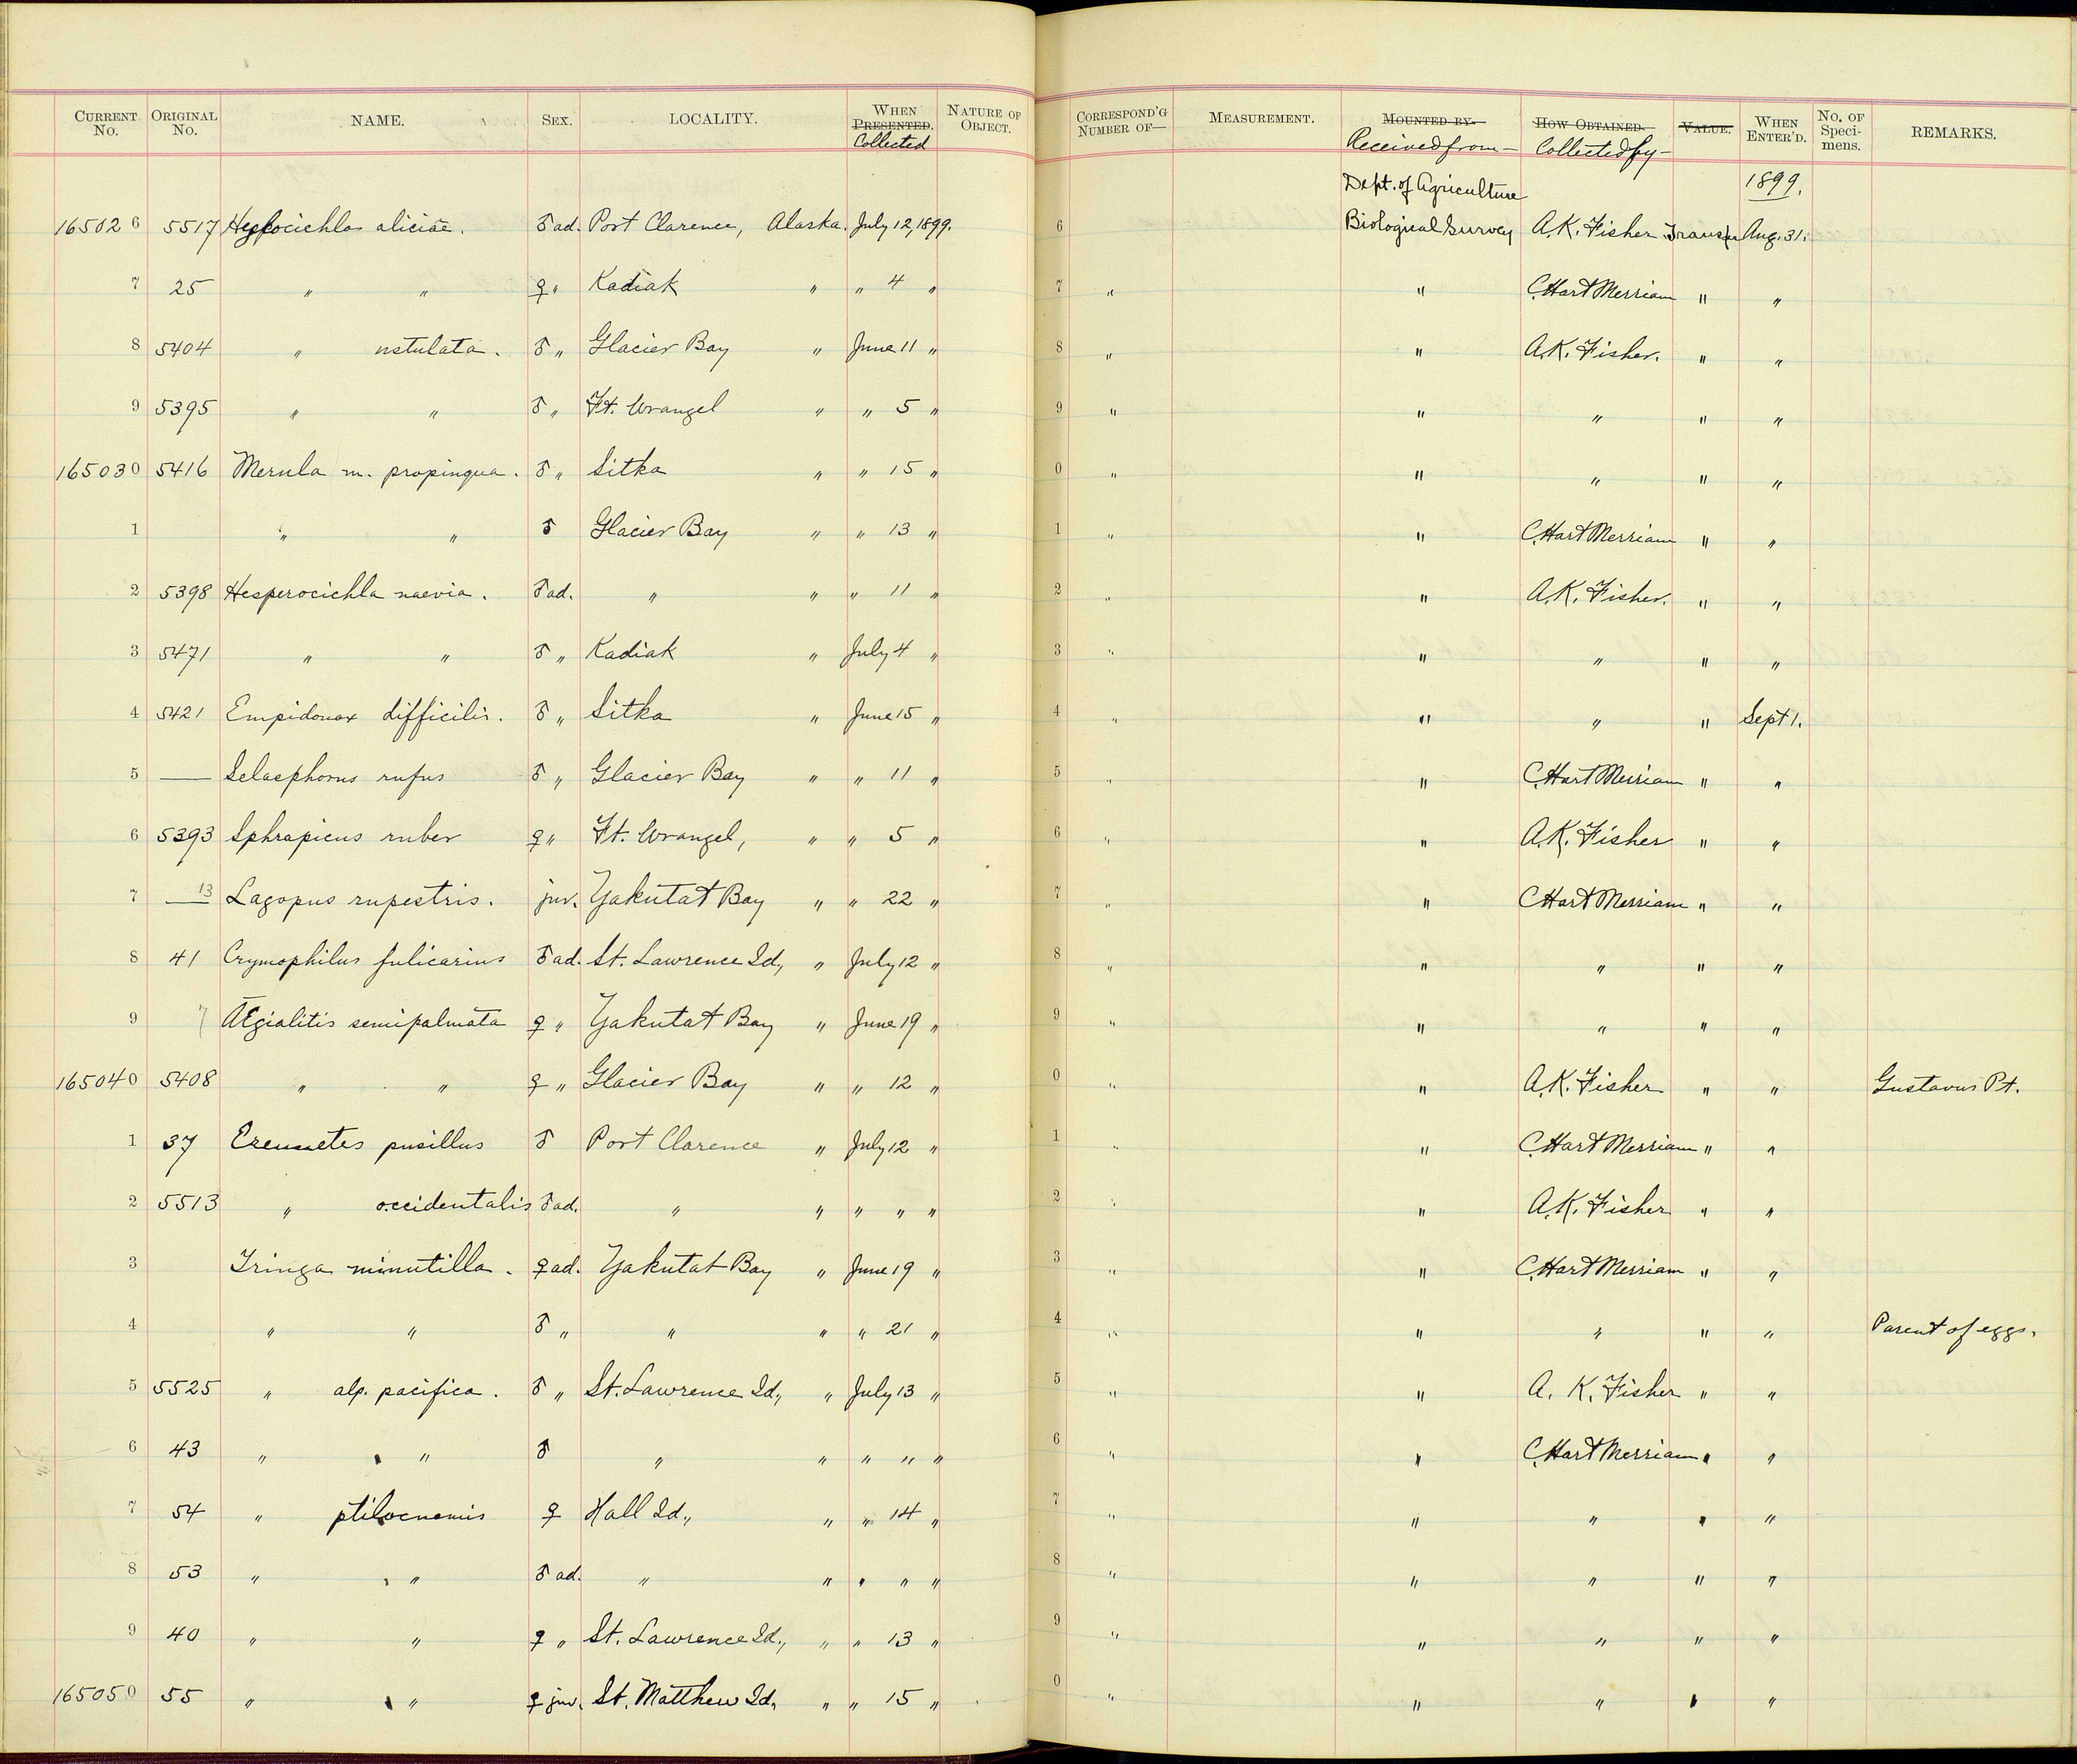 CURRENT No. ORIGINAL No. NAME. SEX. LOCALITY. WHEN PRESENTED. Collected NATURE OF OBJECT. CORRESPOND'G NUMBER OF— MEASUREMENT. MOUNTED BY— Received from— HOW OBTAINED. Collected by— VALUE. WHEN ENTER'D. No. OF Specimens. REMARKS.
Dept. of Agriculture 1899.
165026 5517 Hylocichla aliciae. ♂ ad. Port Clarence, Alaska. July 12, 1899. 6 Biological Survey A.K. Fisher Transfer Aug. 31.
7 25 " " ♀ " Kadiak " " 4 " 7 " " C. Hart Merriam " "
8 5404 " ustulata. ♂ " Glacier Bay " June 11 " 8 " " A.K. Fisher. " "
9 5395 " " ♂ " Ft. Wrangel " " 5 " 9 " " " " "
165030 5416 Merula m. propinqua. ♂ " Sitka " " 15 " 0 " " " " "
1 " " ♂ Glacier Bay " " 13 " 1 " " C. Hart Merriam " "
2 5398 Hesperocichla naevia. ♂ ad. " " " 11 " 2 " " A.K. Fisher. " "
3 5471 " " ♂ " Kadiak " July 4 " 3 " " " " "
4 5421 Empidonax difficilis. ♂ " Sitka " June 15 " 4 " " " " Sept 1.
5 — Selasphorus rufus ♂ " Glacier Bay " " 11 " 5 " " C. Hart Merriam " "
6 5393 Sphrapicus ruber ♀ " Ft. Wrangel, " " 5 " 6 " " A.K. Fisher " "
7 13 Lagopus rupestris. juv. Yakutat Bay " " 22 " 7 " " C Hart Merriam " "
8 41 Crymophilus fulicarius ♂ ad. St. Lawrence Id., " July 12 " 8 " " " " "
9 7 Ægialitis semipalmata ♀ " Yakutat Bay " June 19 " 9 " " " " "
165040 5408 " " ♀ " Glacier Bay " " 12 " 0 " " A.K. Fisher " " Gustavus Pt.
1 37 Ereunetes pusillus ♂ Port Clarence " July 12 " 1 " " C. Hart Merriam " "
2 5513 " occidentalis ♂ ad. " " " " " 2 " " A.K. Fisher " "
3 Tringa minutilla. ♀ ad. Yakutat Bay " June 19 " 3 " " C. Hart Merriam " "
4 " " ♂ " " " " 21 " 4 " " " " " Parent of eggs.
5 5525 " alp. pacifica. ♂ " St. Lawrence Id., " July 13 " 5 " " A. K. Fisher " "
6 43 " " " ♂ " " " " " 6 " " C. Hart Merriam " "
7 54 " ptilocnemis ♀ Hall Id., " " 14 " 7 " " " " "
8 53 " " " ♂ ad. " " " " " 8 " " " " "
9 40 " " ♀ " St. Lawrence Id., " " 13 " 9 " " " " "
165050 55 " " " ♀ juv. St. Matthew Id, " " 15 " 0 " " " " "